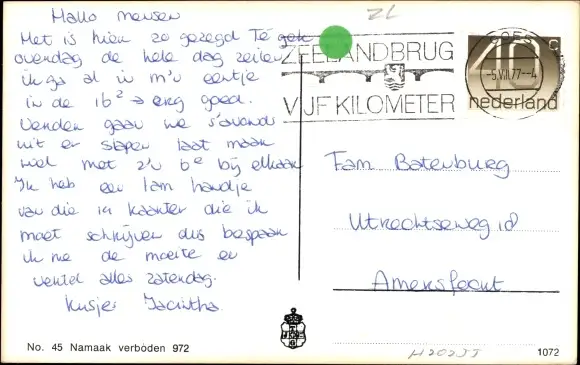 Hallo mensen
Met is hier zo gezegd Té gek
overdag de hele dag zeilen
ik ga al in m'n eentje
in de 16² → erg goed.
Verder gaan we s'avonds
uit en slapen laat maar
wel met z'n 6e bij elkaar
Ik heb een lam handje
van die 14 kaarten die ik
moet schrijven dus bespaar
ik me de moeite en
vertel alles zaterdag.
Kusjes Jacintha
ZL
ZEELANDBRUG
VIJF KILOMETER
-5.VIII.77.-4
40 c
nederland
Fam Batenburg
Utrechtseweg 18
Amersfoort
No. 45 Namaak verboden 972
H202JJ
1072